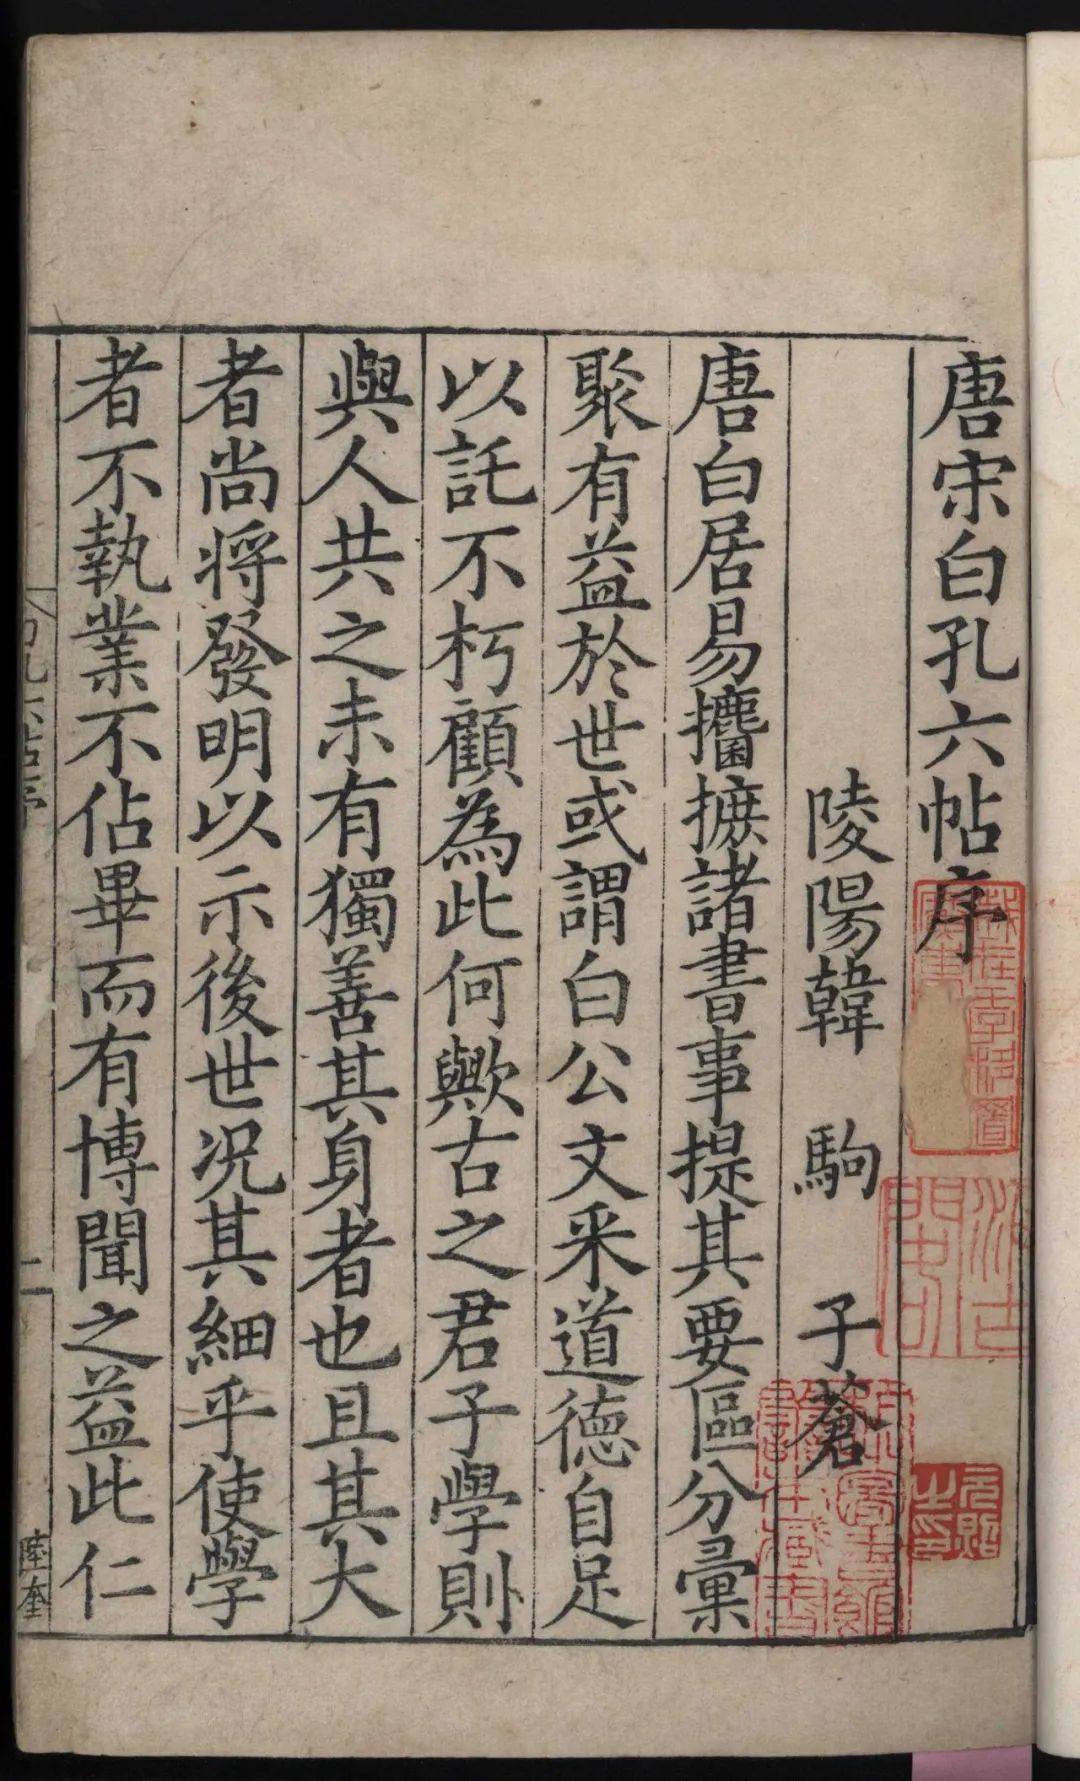 唐宋白孔六帖序
陵陽韓 駒 子蒼
唐白居易攟摭諸書事提其要區分彙
聚有益於世或謂白公文采道德自足
以託不朽顧為此何歟古之君子學則
與人共之未有獨善其身者也且其大
者尚將發明以示後世况其細乎使學
者不執業不佔畢而有博聞之益此仁
二
陸奎